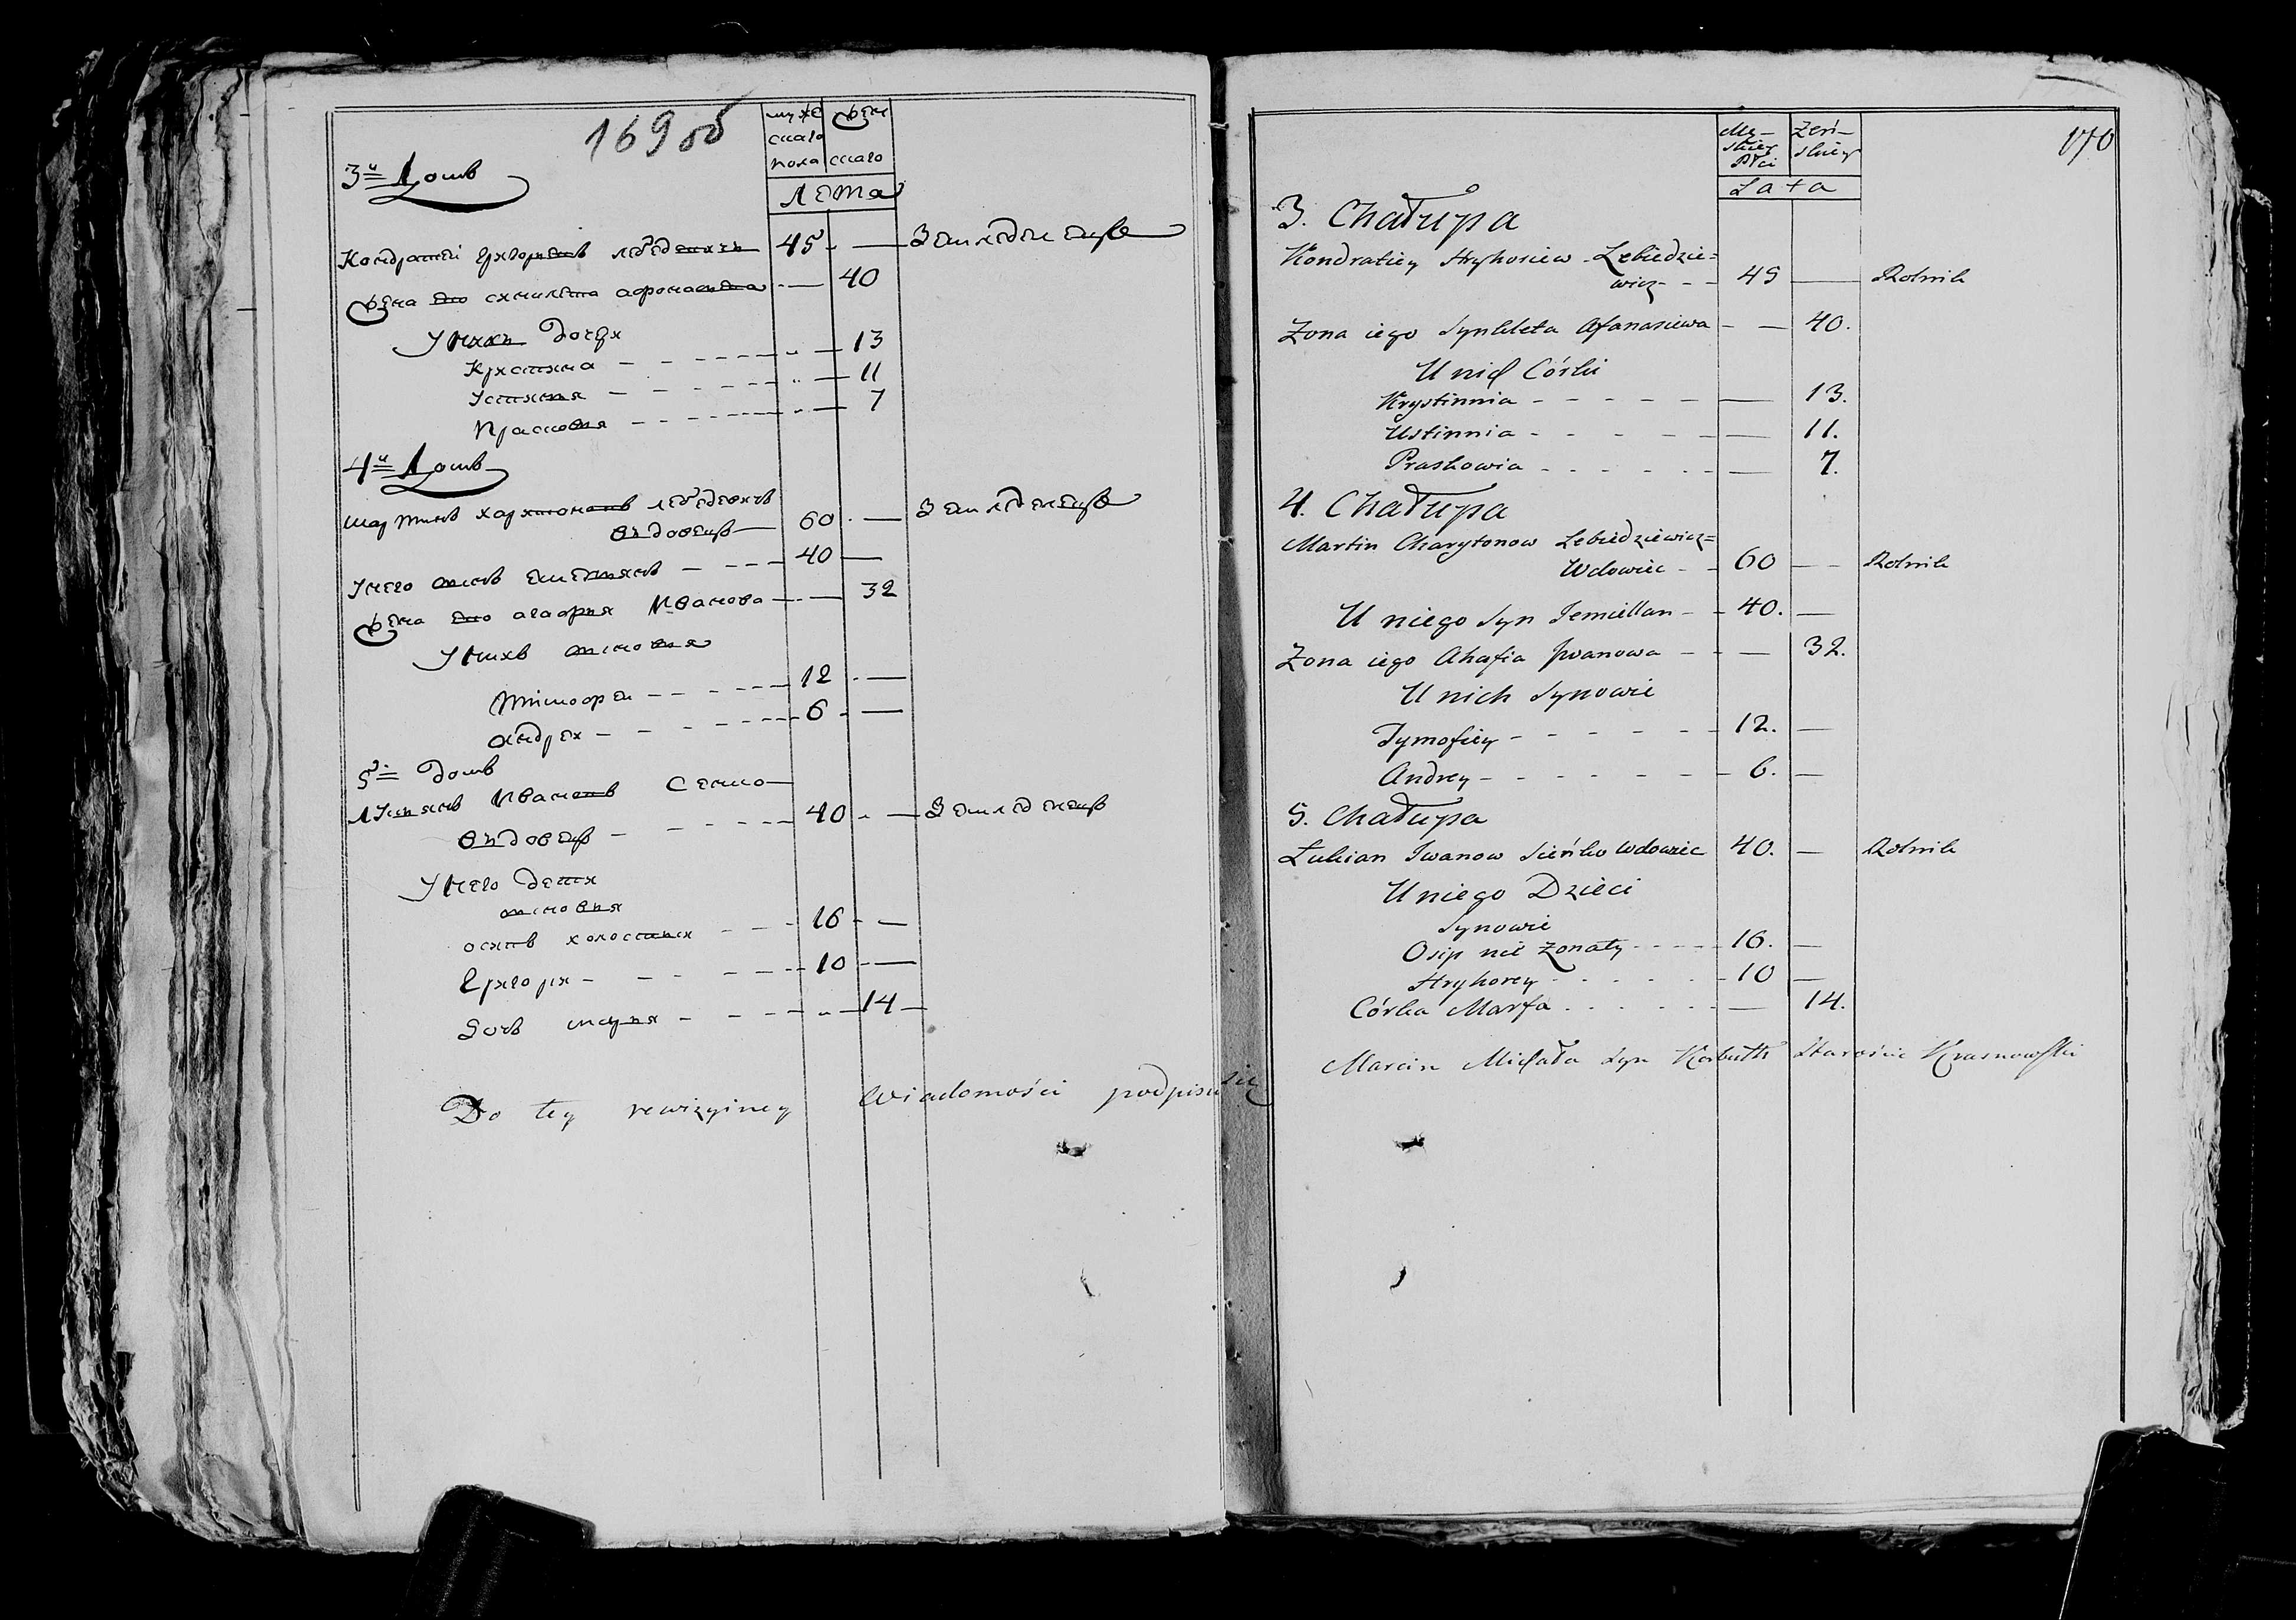 169 об
муже ского пола
жен ского
Лета
3й Домъ
Кондратей Григорьевъ Лебедевичъ 45 - — Земледелецъ
Жена его Синклета Афонасьева - — 40
У них Дочери
Кристина - - - — 13
Устинья - - - — 11
Прасковья - - - — 7
4й Домъ
Мартинъ Харитоновъ Лебедевичъ
вдовецъ — 60 - — Земледелецъ
У него сынъ Емельянъ - - - 40 —
Жена его Агафья Иванова - — 32
У нихъ сыновья
Тимофеи - - - 12 - —
Андреи - - - 6 - —
5й Домъ
Лукьянъ Ивановъ Сенко
вдовецъ - - - 40 - — Земледелецъ
У него дети
сыновья
Осипъ холостыи - - - 16 - —
Григори - - - 10 - —
Дочь - - - 14 —
Do tey rewizyiney Wiadomości podpisuię
170
Mę-skiey Płci
Żeń-skiey
Lata
3. Chałupa
Kondratiey Hryhoriew Lebiedzie=
wicz - - 45 — Rolnik
Zona iego Synkleta Afanasiewa - — 40.
U nich Córki
Krystinnia - - - — 13.
Ustinnia - - - — 11.
Praskowia - - - — 7.
4. Chałupa
Martin Charytonow Lebiedziewicz=
Wdowiec - - 60 — Rolnik
U niego Syn Jemiellan - - 40. —
Zona iego Ahafia Iwanowa - - — 32.
U nich Synowie
Tymofiey - - - 12. —
Andrey - - - 6. —
5. Chałupa
Łukian Iwanow Sieńko Wdowiec 40. — Rolnik
U niego Dzieci
Synowie
Osip nie żonaty - - - 16. —
Hryhorey - - - 10 —
Córka Marfa - - - — 14.
Marcin Michała Syn Korbutt Starosta Krasnowski